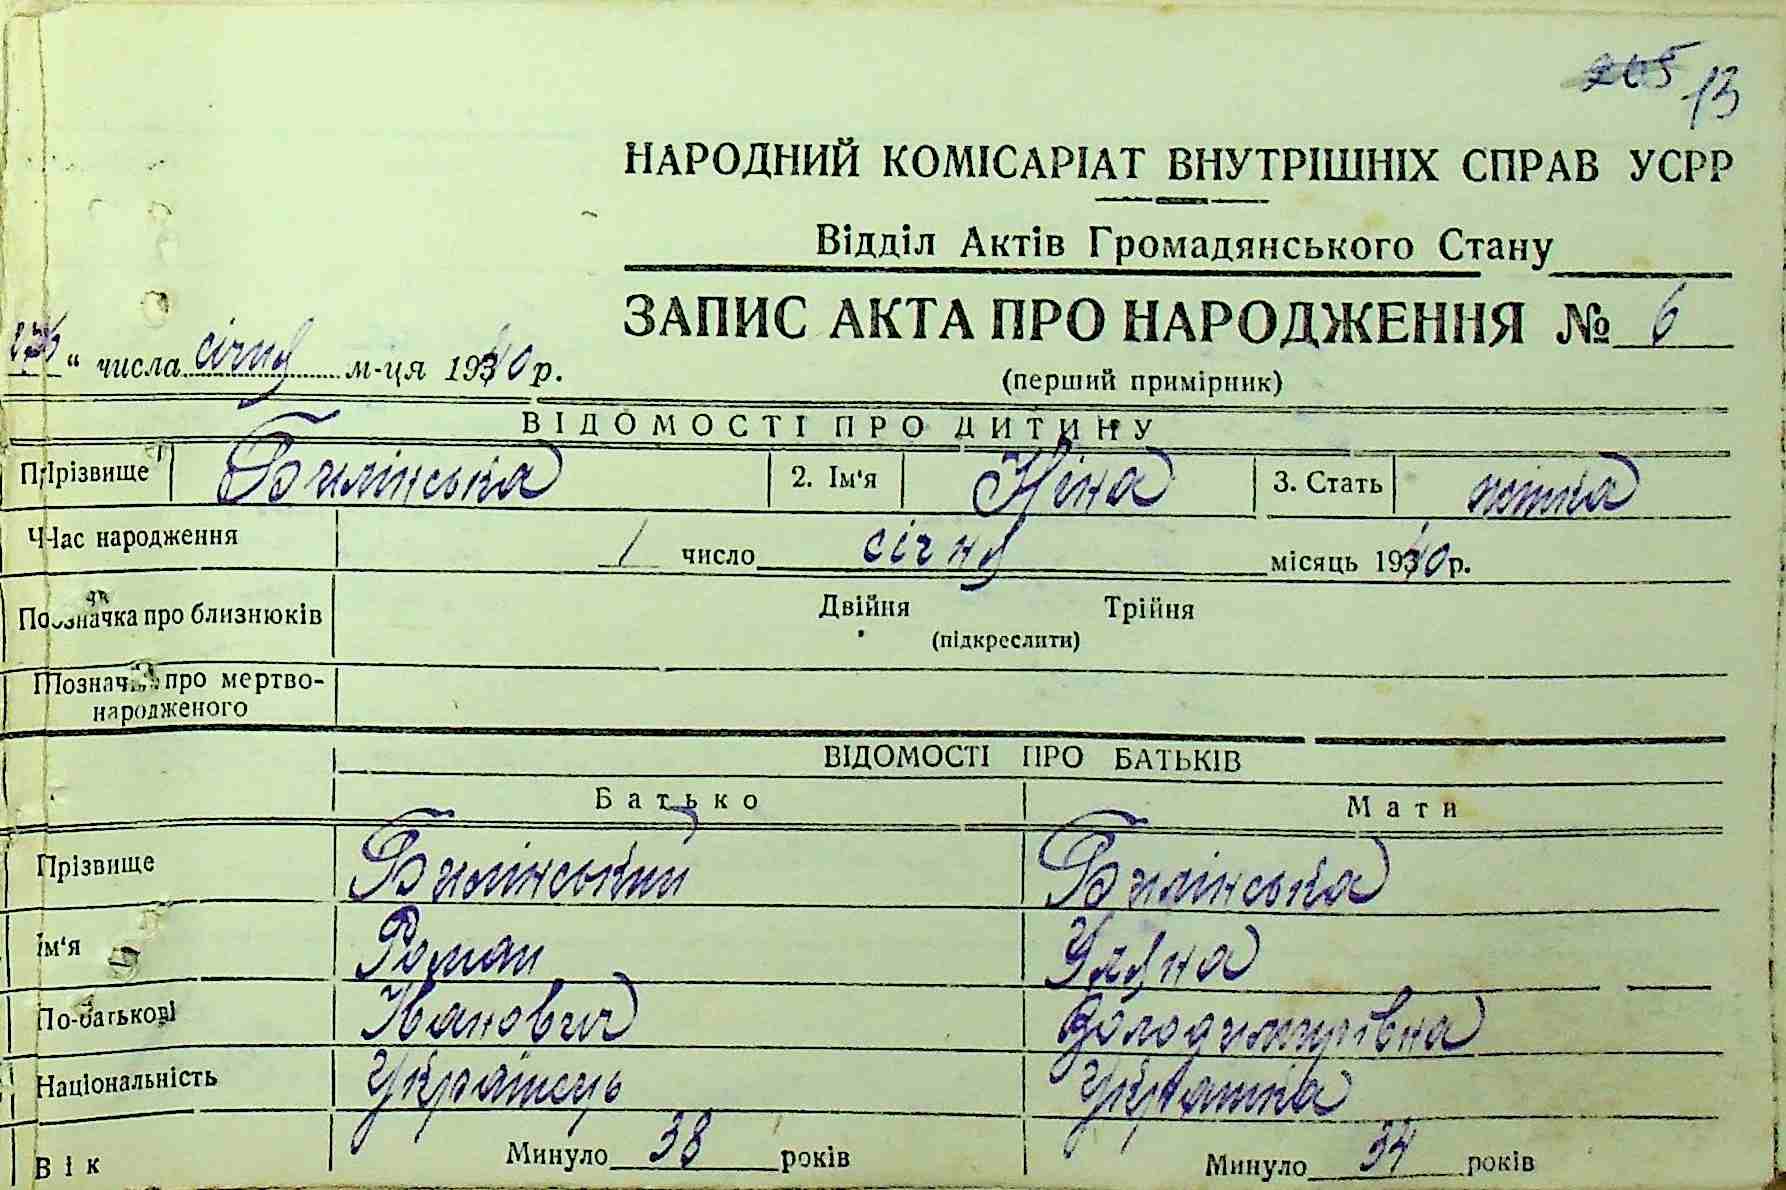 265 13
НАРОДНИЙ КОМІСАРІАТ ВНУТРІШНІХ СПРАВ УСРР
Відділ Актів Громадянського Стану
ЗАПИС АКТА ПРО НАРОДЖЕННЯ № 6
" числа січня м-ця 1940 р.
(перший примірник)
ВІДОМОСТІ ПРО ДИТИНУ
Прізвище Билінська 2. Ім'я Ніна 3. Стать жінка
Час народження 1 число січня місяць 1940 р.
Позначка про близнюків Двійня Трійня
(підкреслити)
Позначка про мертво-
народженого
ВІДОМОСТІ ПРО БАТЬКІВ
Батько Мати
Прізвище Билінський Билінська
Ім'я Роман Уляна
По-батькові Іванович Володимирівна
Національність Українець Українка
Вік Минуло 38 років Минуло 34 років